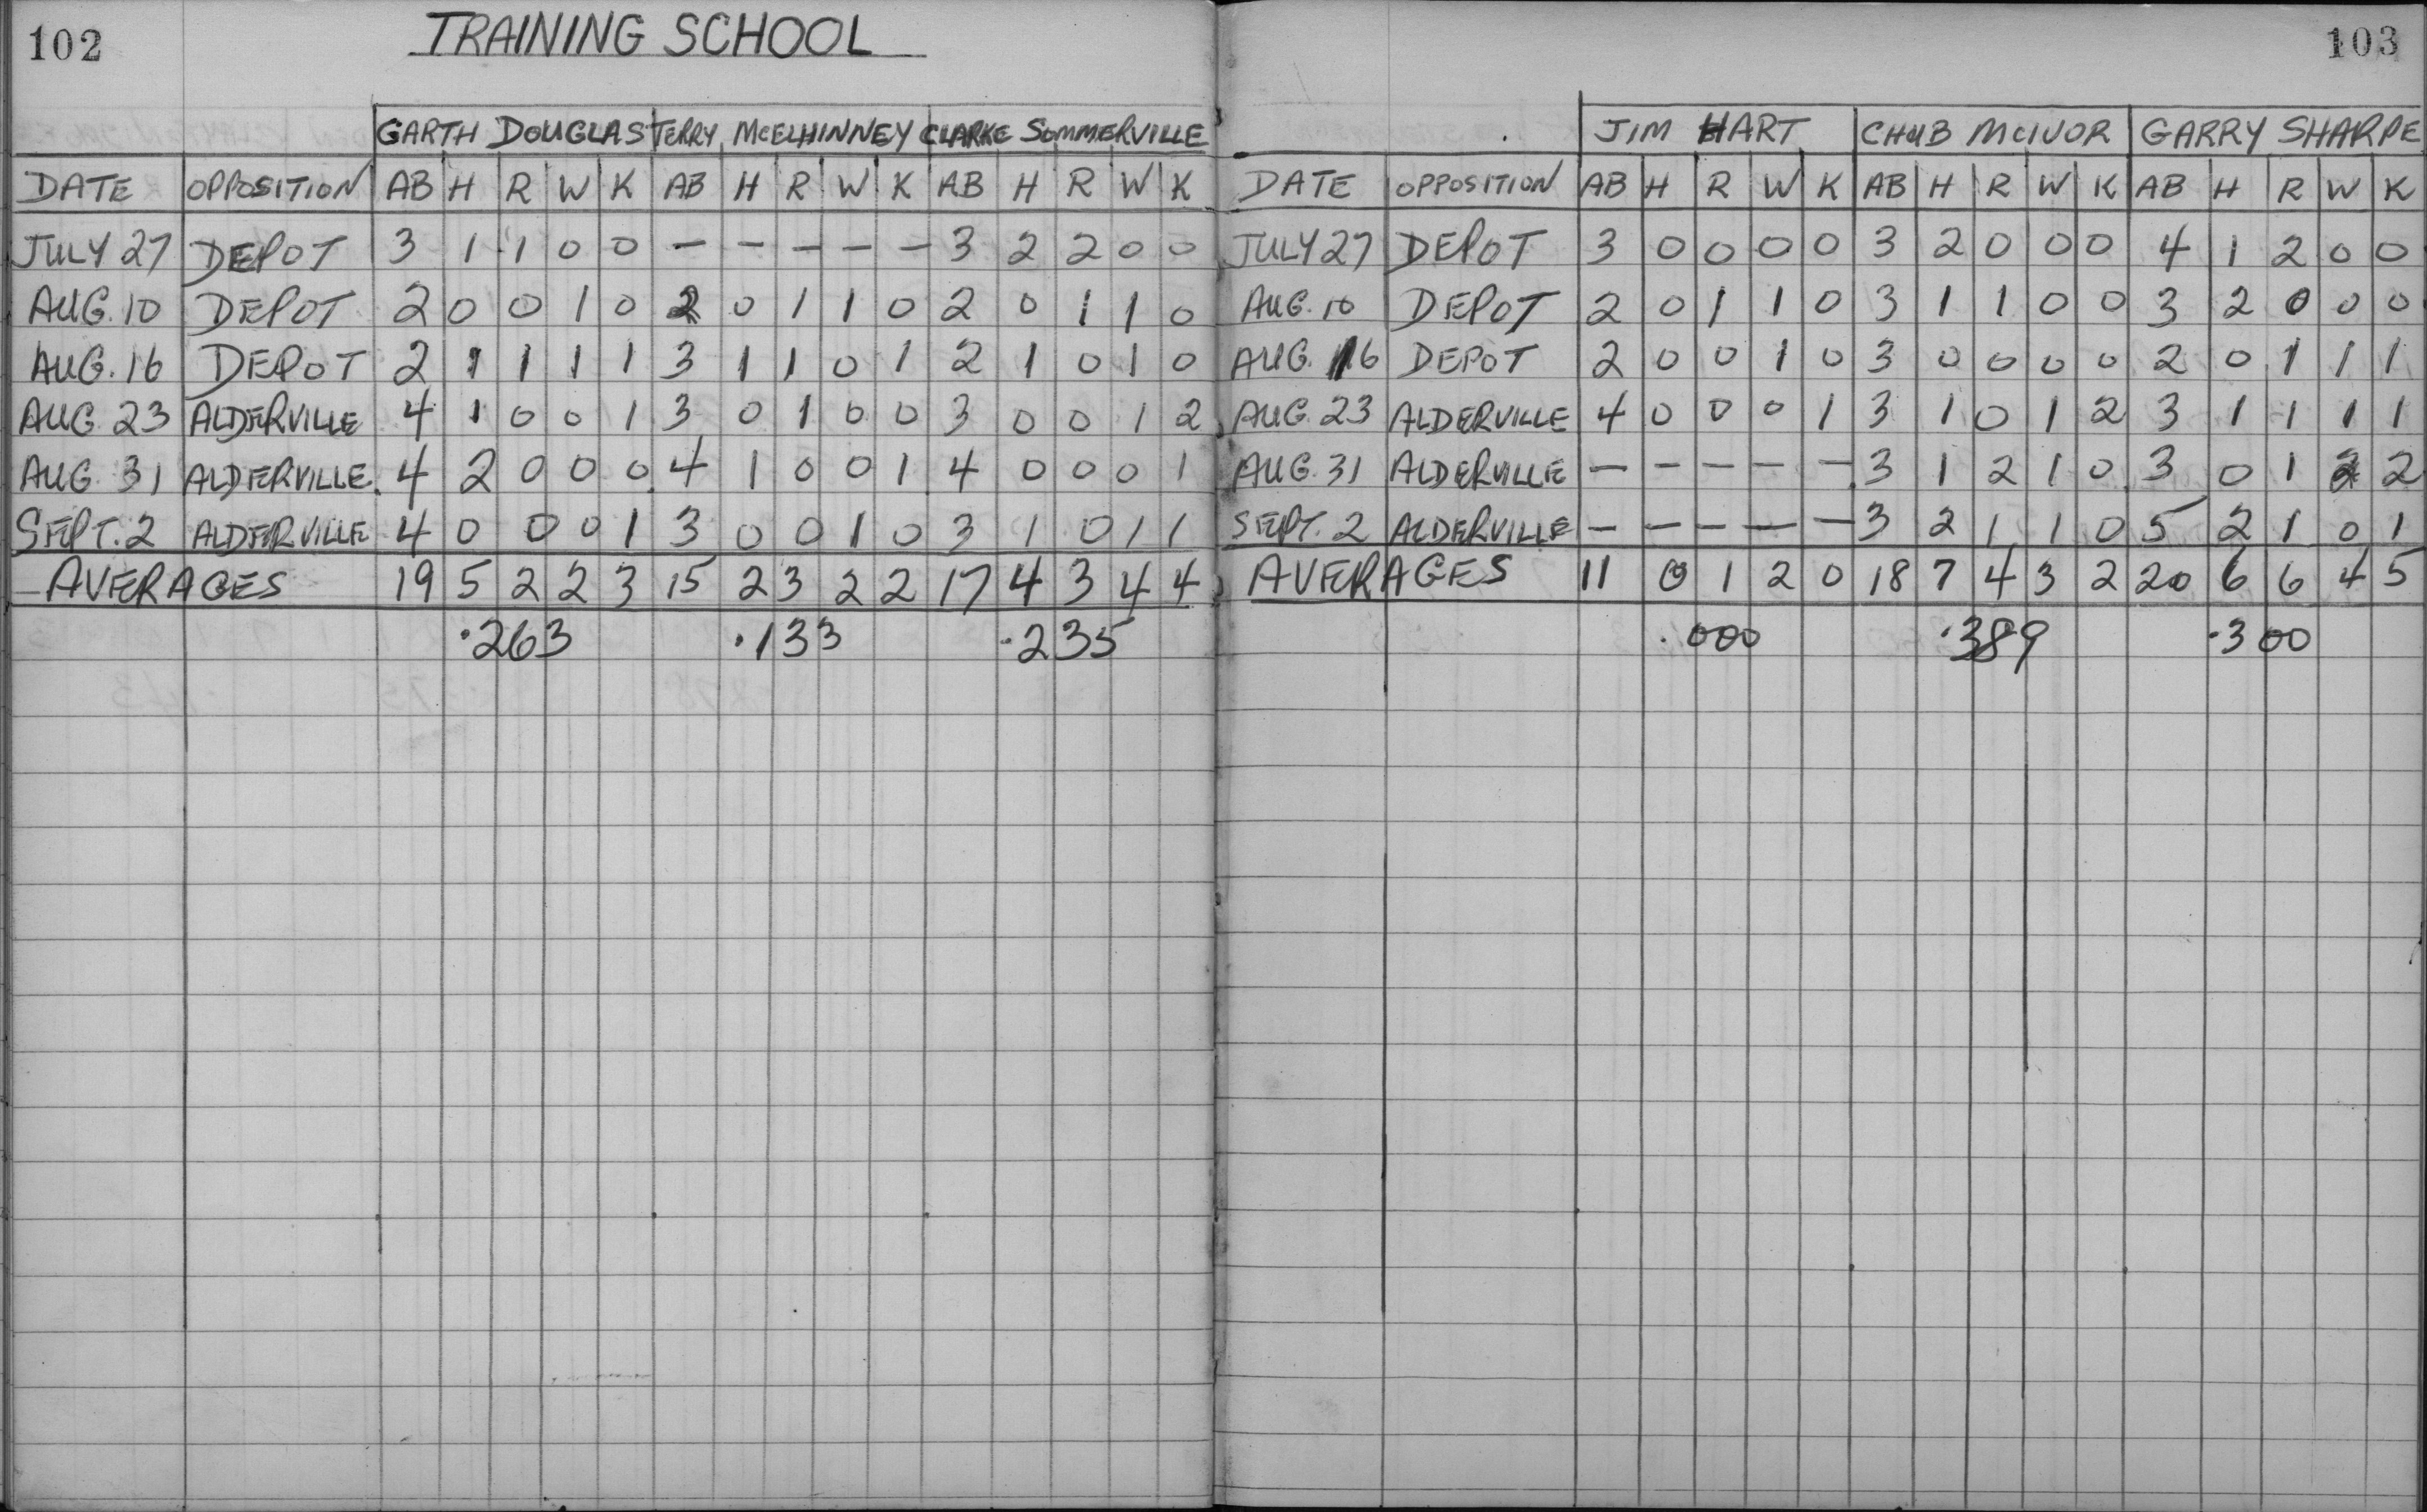 102
TRAINING SCHOOL
GARTH DOUGLAS TERRY McELHINNEY CLARKE SOMMERVILLE
DATE OPPOSITION AB H R W K AB H R W K AB H R W K
JULY 27 DEPOT 3 1 1 0 0 – – – – – 3 2 2 0 0
AUG. 10 DEPOT 2 0 0 1 0 2 0 1 1 0 2 0 1 1 0
AUG. 16 DEPOT 2 1 1 1 1 3 1 1 0 1 2 1 0 1 0
AUG 23 ALDERVILLE 4 1 0 0 1 3 0 1 0 0 3 0 0 1 2
AUG 31 ALDERVILLE 4 2 0 0 0 4 1 0 0 1 4 0 0 0 1
SEPT. 2 ALDERVILLE 4 0 0 0 1 3 0 0 1 0 3 1 0 1 1
AVERAGES 19 5 2 2 3 15 2 3 2 2 17 4 3 4 4
.263 .133 .235
103
JIM HART CHUB McIVOR GARRY SHARPE
DATE OPPOSITION AB H R W K AB H R W K AB H R W K
JULY 27 DEPOT 3 0 0 0 0 3 2 0 0 0 4 1 2 0 0
AUG. 10 DEPOT 2 0 1 1 0 3 1 1 0 0 3 2 0 0 0
AUG. 16 DEPOT 2 0 0 1 0 3 0 0 0 0 2 0 1 1 1
AUG. 23 ALDERVILLE 4 0 0 0 1 3 1 0 1 2 3 1 1 1 1
AUG. 31 ALDERVILLE – – – – – 3 1 2 1 0 3 0 1 2 2
SEPT. 2 ALDERVILLE – – – – – 3 2 1 1 0 5 2 1 0 1
AVERAGES 11 0 1 2 0 18 7 4 3 2 20 6 6 4 5
.000 .389 .300